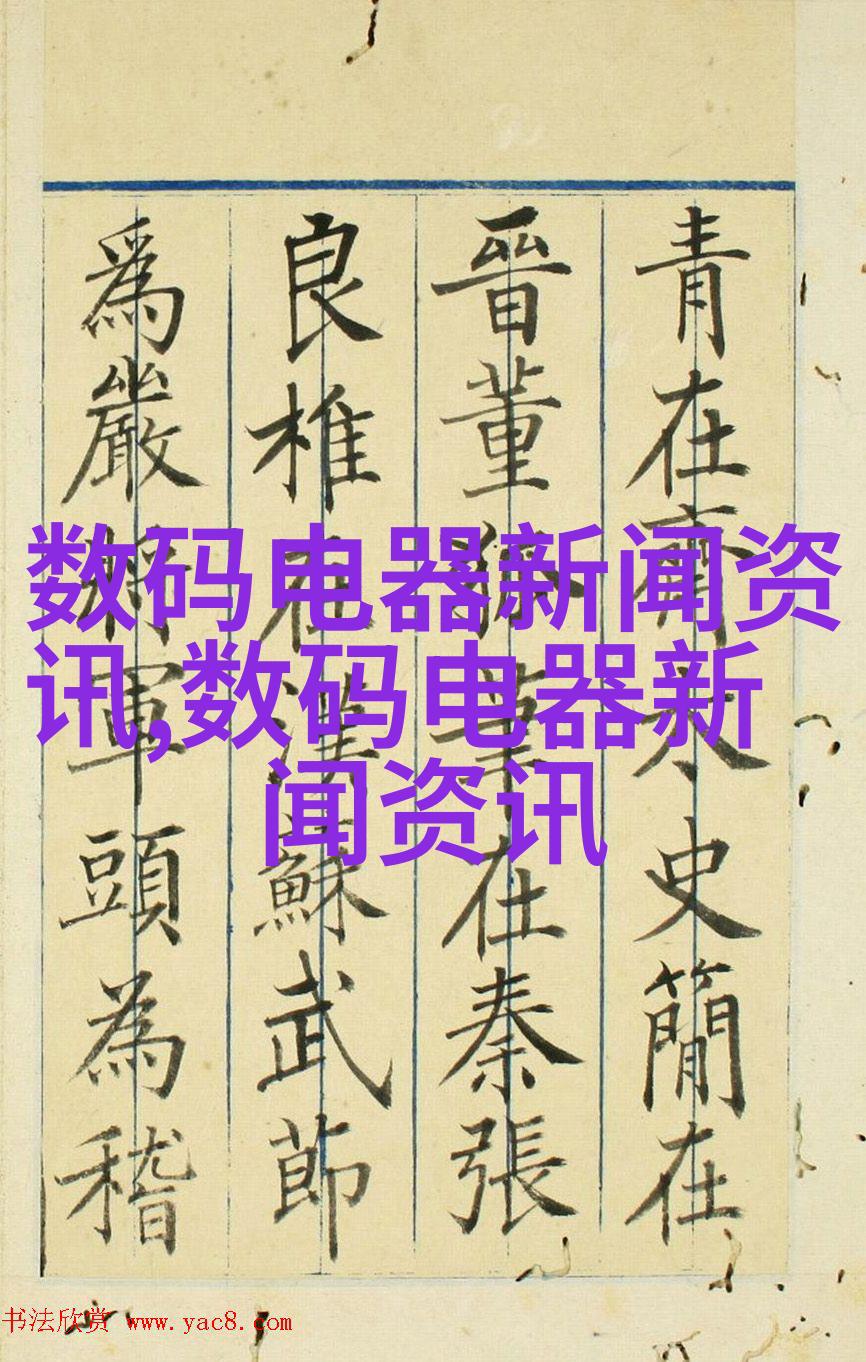 青在齊太史簡在
晉董狐筆在秦張
良椎在漢蘇武節
爲嚴將軍頭為稽
数码电器新闻资
讯,数码电器新
闻资讯
书法欣赏 www.yac8.com